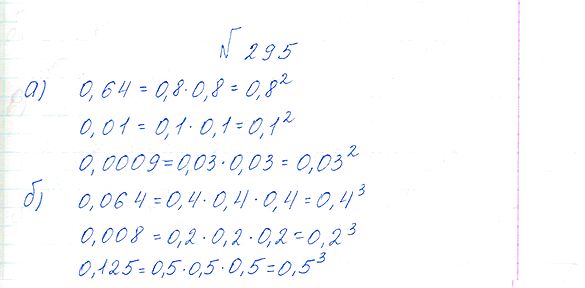 № 295
а) 0,64 = 0,8 · 0,8 = 0,8²
0,01 = 0,1 · 0,1 = 0,1²
0,0009 = 0,03 · 0,03 = 0,03²
б) 0,064 = 0,4 · 0,4 · 0,4 = 0,4³
0,008 = 0,2 · 0,2 · 0,2 = 0,2³
0,125 = 0,5 · 0,5 · 0,5 = 0,5³